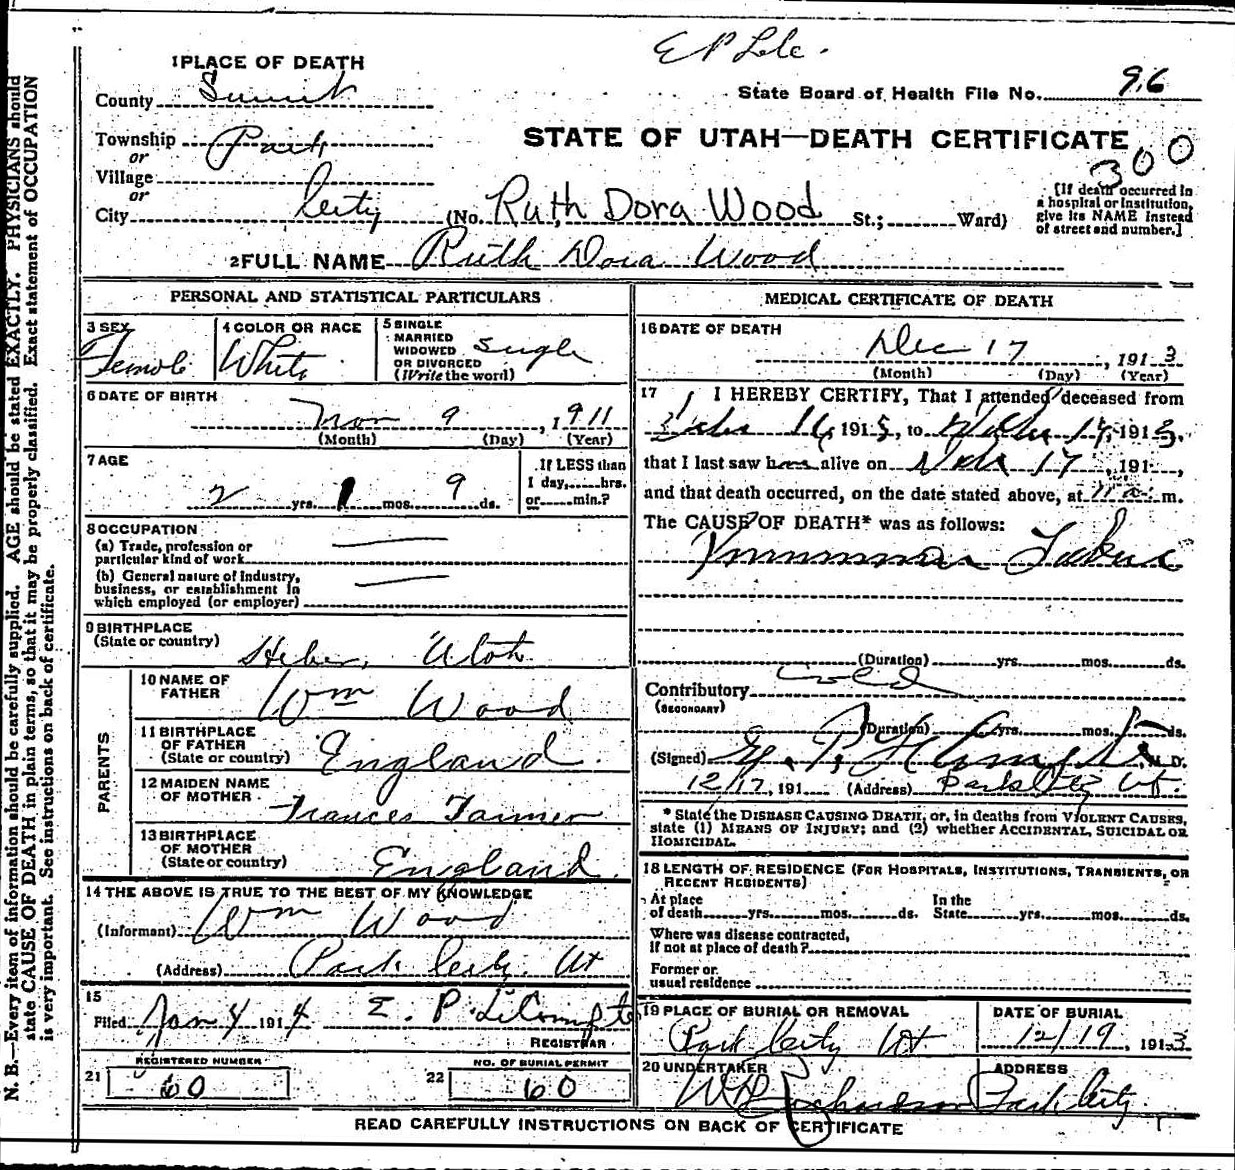 1 PLACE OF DEATH
County Summit
State Board of Health File No. 96
STATE OF UTAH—DEATH CERTIFICATE
300
Township Park
or
Village
or
City City (No. Ruth Dora Wood St.; Ward)
[If death occurred in
a hospital or institution,
give its NAME instead
of street and number.]
2 FULL NAME Ruth Dora Wood
PERSONAL AND STATISTICAL PARTICULARS
3 SEX
Female
4 COLOR OR RACE
White
5 SINGLE
MARRIED
WIDOWED
OR DIVORCED
(Write the word)
Single
6 DATE OF BIRTH
Nov 9, 1911
(Month) (Day) (Year)
7 AGE
2 yrs. 1 mos. 9 ds.
If LESS than
1 day, hrs.
or min.?
8 OCCUPATION
(a) Trade, profession or
particular kind of work
(b) General nature of Industry,
business, or establishment in
which employed (or employer)
9 BIRTHPLACE
(State or country)
Heber, Utah
PARENTS
10 NAME OF
FATHER
Wm Wood
11 BIRTHPLACE
OF FATHER
(State or country)
England
12 MAIDEN NAME
OF MOTHER
Frances Farmer
13 BIRTHPLACE
OF MOTHER
(State or country)
England
14 THE ABOVE IS TRUE TO THE BEST OF MY KNOWLEDGE
(Informant) Wm Wood
(Address) Park City Ut
15
Filed Jan 4 1914 E. P. LeCompte
REGISTRAR
21 REGISTERED NUMBER
60
22 NO. OF BURIAL PERMIT
60
MEDICAL CERTIFICATE OF DEATH
16 DATE OF DEATH
Dec 17, 1913
(Month) (Day) (Year)
17 I HEREBY CERTIFY, That I attended deceased from
16, 191 , to 17, 1913,
that I last saw alive on 17, 191 ,
and that death occurred, on the date stated above, at 11 a. m.
The CAUSE OF DEATH* was as follows:
(Duration) yrs. mos. ds.
Contributory Cold
(SECONDARY)
(Duration) yrs. mos. ds.
(Signed) M. D.
12/17, 191 (Address) Park City Ut.
* State the DISEASE CAUSING DEATH, or, in deaths from VIOLENT CAUSES,
state (1) MEANS OF INJURY; and (2) whether ACCIDENTAL, SUICIDAL OR
HOMICIDAL.
18 LENGTH OF RESIDENCE (FOR HOSPITALS, INSTITUTIONS, TRANSIENTS, OR
RECENT RESIDENTS)
At place
of death yrs. mos. ds.
In the
State yrs. mos. ds.
Where was disease contracted,
if not at place of death?
Former or
usual residence
19 PLACE OF BURIAL OR REMOVAL
Park City Ut
DATE OF BURIAL
12/19, 1913
20 UNDERTAKER
ADDRESS
Park City
READ CAREFULLY INSTRUCTIONS ON BACK OF CERTIFICATE
N. B.—Every item of information should be carefully supplied. AGE should be stated EXACTLY. PHYSICIANS should
state CAUSE OF DEATH in plain terms, so that it may be properly classified. Exact statement of OCCUPATION
is very important. See instructions on back of certificate.